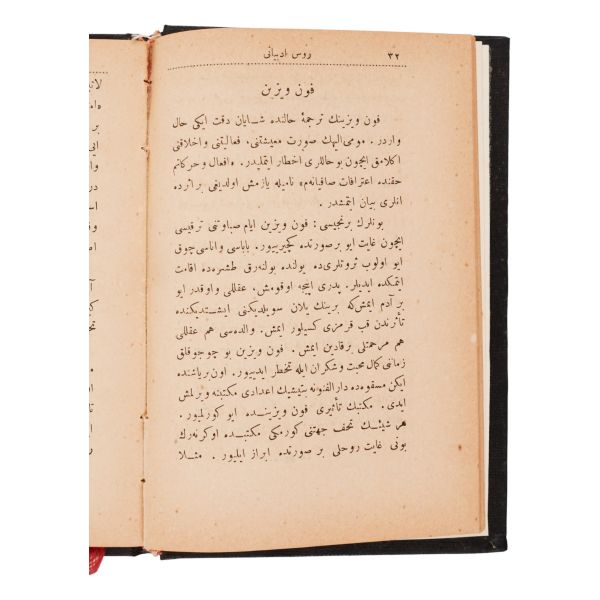 ٣٢ روس ادبياتى
فون ويزين
فون ويزينك ترجمۀ حالنده شايان دقت ايكى حال
واردر . مومى اليهك صورت معيشتنى ، فعاليتنى و اخلاقنى
اكلامق ايچون بوحاللرى اخطار ايتمليدر . «افعال و حركاتم
حقنده اعترافات صافيانه‌م» ناميله يازمش اولديغى بر اثرده
انلرى بيان ايتمشدر .
بونلرك برنجيسى : فون ويزين ايام صباوتنى ترقيسى
ايچون غايت ايو بر صورتده كچيرييور. باباسى و اناسى چوق
ايو اولوب ثروتلرى‌ده يولنده بولنه‌رق طشره‌ده اقامت
ايتمكده ايديلر. پدرى اييجه اوقومش، عقللى و اوقدر ايو
بر آدم ايمش كه برينك يلان سويلديكنى ايشتديكنده
تأثرندن قپ قرمزى كسيلور ايمش. والده‌سى هم عقللى
هم مرحمتلى بر قادين ايمش . فون ويزين بو چوجوقلق
زمانى كمال محبت و شكران ايله تخطر ايدييور. اون برياشنده
ايكن مسقوه‌ده دارالفنونه يتيشيك اعدادى مكتبنه ويرلمش
ايدى . مكتبك تأثيرى فون ويزينده ايو كورلميور .
هر شيئك تحف جهتنى كورمكى مكتبده اوكرنه‌رك
بونى غايت روحلى بر صورتده ابراز ايليور . مثلا